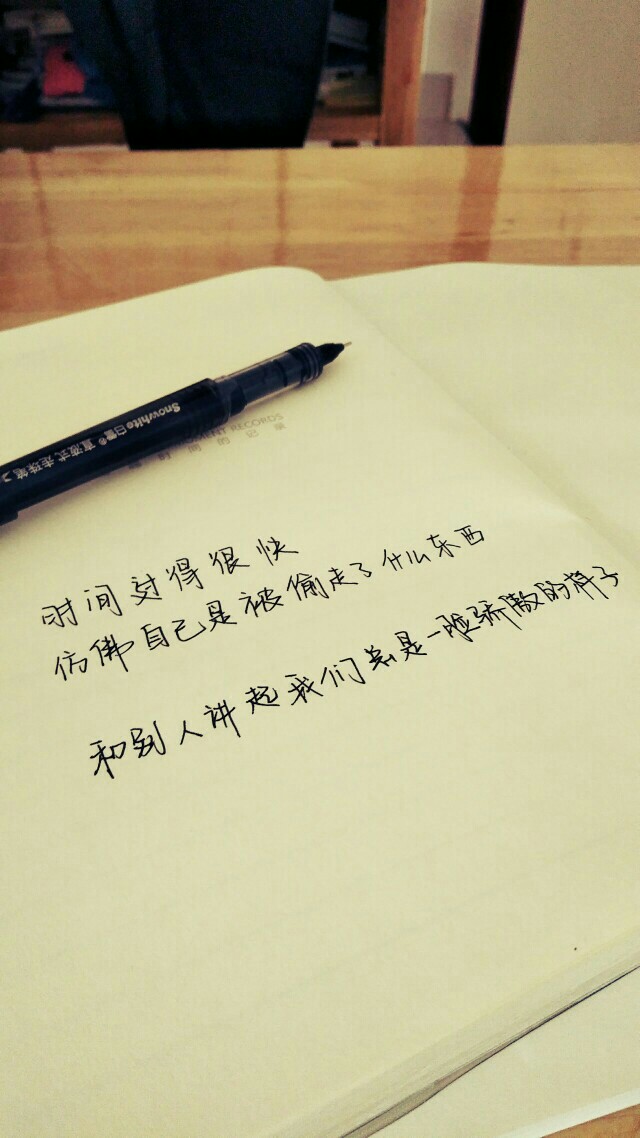 Snowhite白雪® 直液式 走珠笔
MENT RECORDS
时间的记录
时间过得很快
仿佛自己是被偷走了什么东西
和别人讲起我们总是一脸骄傲的样子